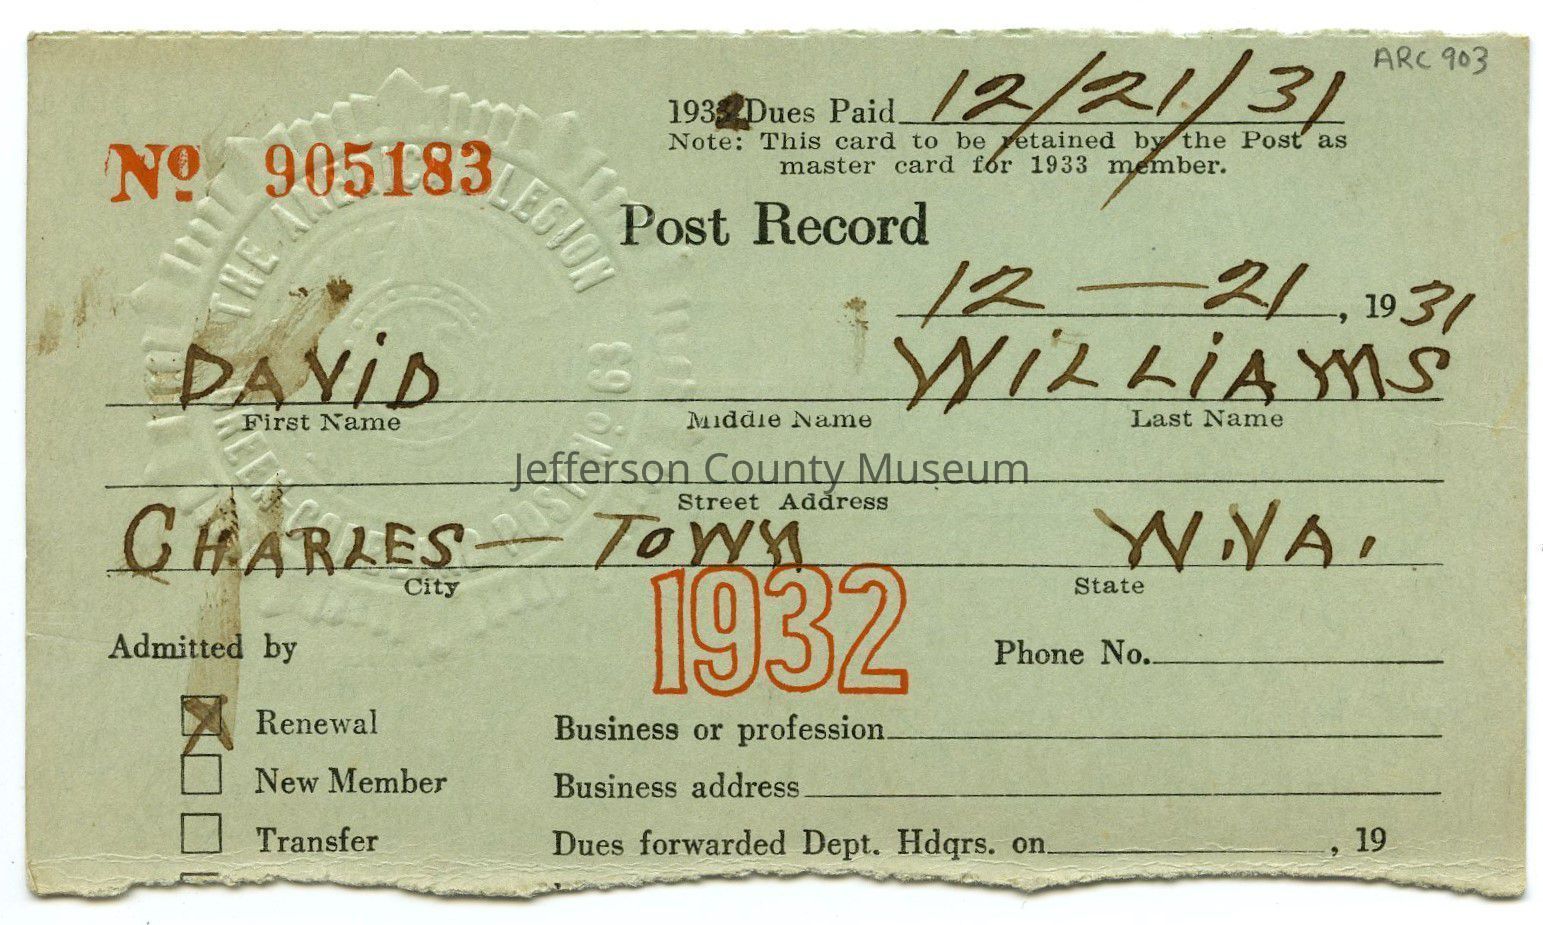 ARC 903
1932 Dues Paid 12/21/31
Note: This card to be retained by the Post as
master card for 1933 member.
No 905183
THE AMERICAN LEGION
POST No. 63
Post Record
12 — 21, 1931
DAViD WiLLiAMS
First Name Middle Name Last Name
Jefferson County Museum
Street Address
CHARLES — TOWN W.VA.
City State
1932
Admitted by Phone No.
Renewal Business or profession
New Member Business address
Transfer Dues forwarded Dept. Hdqrs. on , 19